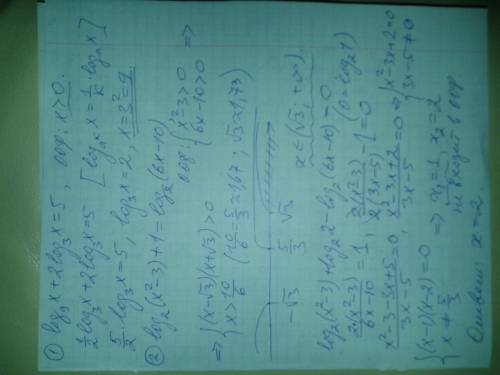 ① log₉x + 2log₃x = 5, оос: x>0.
½log₃x + 2log₃x = 5 [logₐᵏ x = 1/k · logₐ x]
5/2 · log₃x = 5, log₃x = 2, x = 3² = 9.
② log₂(x²-3)+1 = log₂(6x-10)
оос: {x²-3>0 {6x-10>0 ⇒
⇒ {(x-√3)(x+√3)>0 {x>10/6 (10/6 = 5/3 ≈ 1,67; √3 ≈ 1,73)
-√3 5/3 √3 x∈(√3; +∞).
log₂(x²-3)+log₂2-log₂(6x-10)=0
2(x²-3)/6x-10 = 1, 2(x²-3)/2(3x-5) - 1 = 0 (0=log₂1)
x²-3-3x+5/3x-5 = 0, x²-3x+2/3x-5 = 0 ⇔ {x²-3x+2=0 {3x-5≠0
{(x-1)(x-2)=0 {x≠5/3 ⇒ x₁=1, x₂=2
не входит в оос
Ответ: x=2.